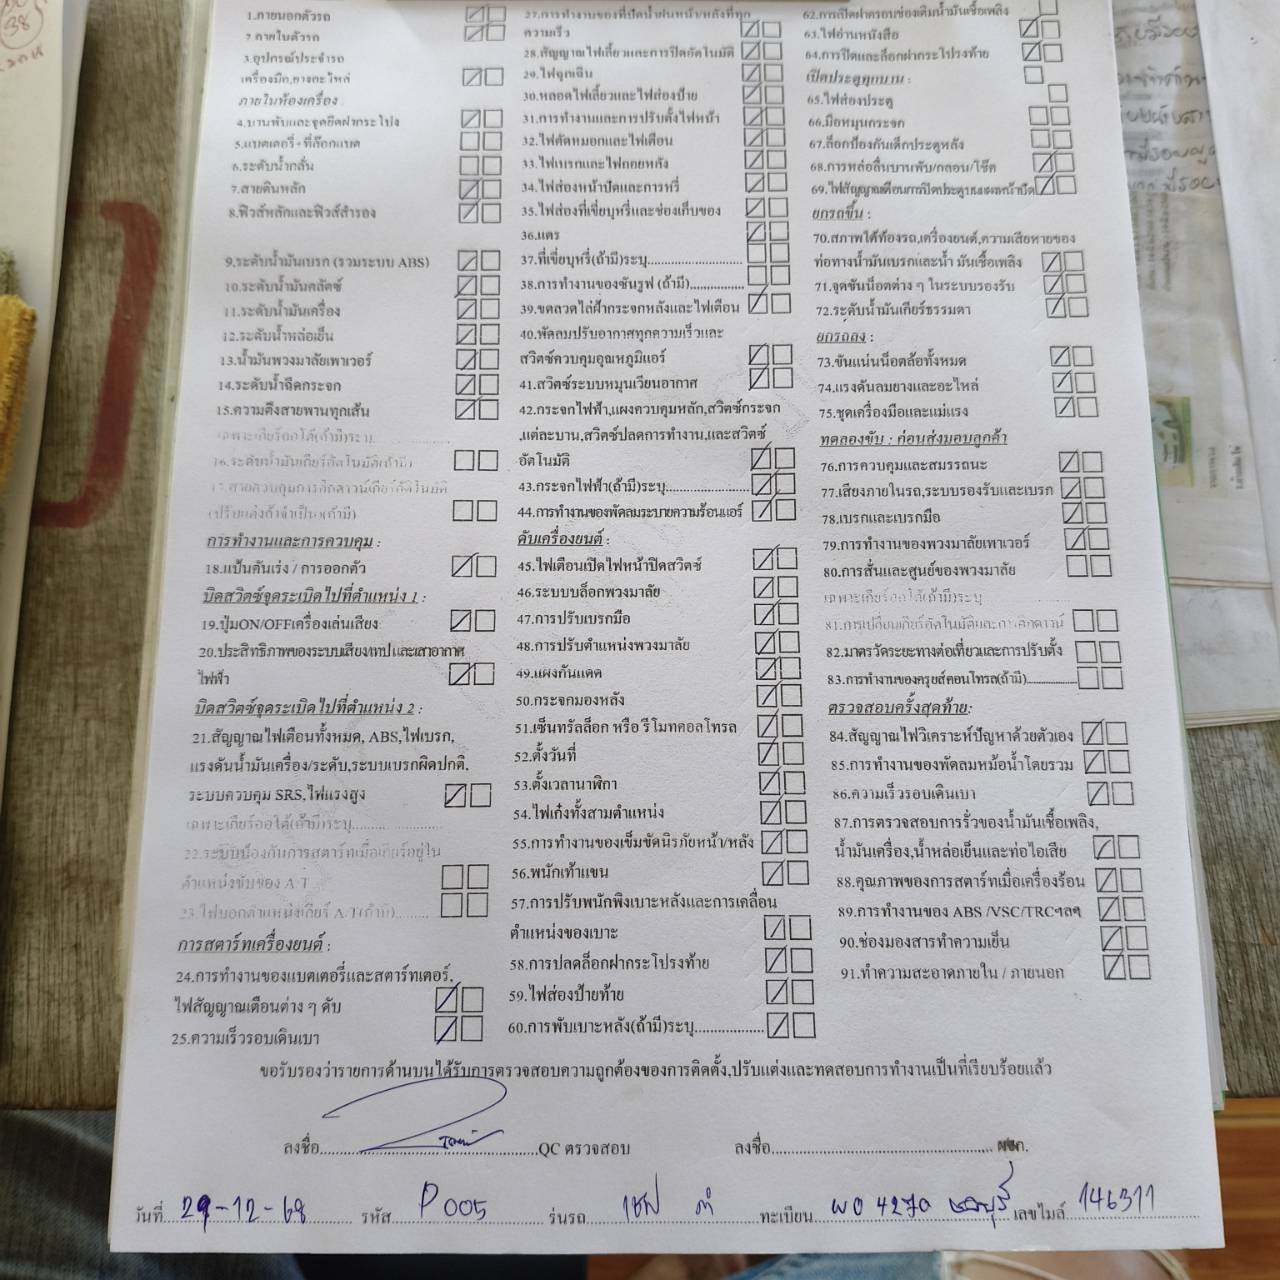 1.ภายนอกตัวรถ
2.ภายในตัวรถ
3.อุปกรณ์ประจำรถ
เครื่องมือ,ยางอะไหล่
ภายในห้องเครื่อง
4.บานพับและจุดยึดฝากระโปรง
5.แบตเตอรี่+ที่ล็อกแบต
6.ระดับน้ำกลั่น
7.สายดินหลัก
8.ฟิวส์หลักและฟิวส์สำรอง
9.ระดับน้ำมันเบรก (รวมระบบ ABS)
10.ระดับน้ำมันคลัตช์
11.ระดับน้ำมันเครื่อง
12.ระดับน้ำหล่อเย็น
13.น้ำมันพวงมาลัยเพาเวอร์
14.ระดับน้ำฉีดกระจก
15.ความตึงสายพานทุกเส้น
เฉพาะเกียร์ออโต้(ถ้ามี)ระบุ
16.ระดับน้ำมันเกียร์อัตโนมัติ(ถ้ามี)
17.สายควบคุมการคิกดาวน์เกียร์อัตโนมัติ
(ปรับแต่งถ้าจำเป็น)(ถ้ามี)
การทำงานและการควบคุม :
18.แป้นคันเร่ง / การออกตัว
บิดสวิตซ์จุดระเบิดไปที่ตำแหน่ง 1 :
19.ปุ่มON/OFFเครื่องเล่นเสียง
20.ประสิทธิภาพของระบบเสียง/เทปและเสาอากาศ
ไฟฟ้า
บิดสวิตซ์จุดระเบิดไปที่ตำแหน่ง 2 :
21.สัญญาณไฟเตือนทั้งหมด, ABS,ไฟเบรก,
แรงดันน้ำมันเครื่อง/ระดับ,ระบบเบรกผิดปกติ,
ระบบควบคุม SRS,ไฟแรงสูง
เฉพาะเกียร์ออโต้(ถ้ามี)ระบุ....................
22.ระบบป้องกันการสตาร์ทเมื่อเกียร์อยู่ใน
ตำแหน่งขับของ A/T
23.ไฟบอกตำแหน่งเกียร์ A/T(ถ้ามี)........
การสตาร์ทเครื่องยนต์ :
24.การทำงานของแบตเตอรี่และสตาร์ทเตอร์,
ไฟสัญญาณเตือนต่าง ๆ ดับ
25.ความเร็วรอบเดินเบา
27.การทำงานของที่ปัดน้ำฝนหน้า/หลังที่ทุก
ความเร็ว
28.สัญญาณไฟเลี้ยวและการปิดอัตโนมัติ
29.ไฟฉุกเฉิน
30.หลอดไฟเลี้ยวและไฟส่องป้าย
31.การทำงานและการปรับตั้งไฟหน้า
32.ไฟตัดหมอกและไฟเตือน
33.ไฟเบรกและไฟถอยหลัง
34.ไฟส่องหน้าปัดและการหรี่
35.ไฟส่องที่เขี่ยบุหรี่และช่องเก็บของ
36.แตร
37.ที่เขี่ยบุหรี่(ถ้ามี)ระบุ........................
38.การทำงานของซันรูฟ (ถ้ามี)..............
39.ขดลวดไล่ฝ้ากระจกหลังและไฟเตือน
40.พัดลมปรับอากาศทุกความเร็วและ
สวิตซ์ควบคุมอุณหภูมิแอร์
41.สวิตซ์ระบบหมุนเวียนอากาศ
42.กระจกไฟฟ้า,แผงควบคุมหลัก,สวิตซ์กระจก
,แต่ละบาน,สวิตซ์ปลดการทำงาน,และสวิตซ์
อัตโนมัติ
43.กระจกไฟฟ้า(ถ้ามี)ระบุ.....................
44.การทำงานของพัดลมระบายความร้อนแอร์
ดับเครื่องยนต์ :
45.ไฟเตือนเปิดไฟหน้าปิดสวิตซ์
46.ระบบบล็อกพวงมาลัย
47.การปรับเบรกมือ
48.การปรับตำแหน่งพวงมาลัย
49.แผงกันแดด
50.กระจกมองหลัง
51.เซ็นทรัลล็อก หรือ รีโมทคอลโทรล
52.ตั้งวันที่
53.ตั้งเวลานาฬิกา
54.ไฟเก๋งทั้งสามตำแหน่ง
55.การทำงานของเข็มขัดนิรภัยหน้า/หลัง
56.พนักเท้าแขน
57.การปรับพนักพิงเบาะหลังและการเคลื่อน
ตำแหน่งของเบาะ
58.การปลดล็อกฝากระโปรงท้าย
59.ไฟส่องป้ายท้าย
60.การพับเบาะหลัง(ถ้ามี)ระบุ..................
62.การเปิดฝาครอบช่องเติมน้ำมันเชื้อเพลิง
63.ไฟอ่านหนังสือ
64.การปิดและล็อกฝากระโปรงท้าย
เปิดประตูทุกบาน :
65.ไฟส่องประตู
66.มือหมุนกระจก
67.ล็อกป้องกันเด็กประตูหลัง
68.การหล่อลื่นบานพับ/กลอน/โช๊ค
69.ไฟสัญญาณเตือนการปิดประตูบนแผงหน้าปัด
ยกรถขึ้น :
70.สภาพใต้ท้องรถ,เครื่องยนต์,ความเสียหายของ
ท่อทางน้ำมันเบรกและน้ำ มันเชื้อเพลิง
71.จุดขันน็อตต่าง ๆ ในระบบรองรับ
72.ระดับน้ำมันเกียร์ธรรมดา
ยกรถลง :
73.ขันแน่นน็อตล้อทั้งหมด
74.แรงดันลมยางและอะไหล่
75.ชุดเครื่องมือและแม่แรง
ทดลองขับ : ก่อนส่งมอบลูกค้า
76.การควบคุมและสมรรถนะ
77.เสียงภายในรถ,ระบบรองรับและเบรก
78.เบรกและเบรกมือ
79.การทำงานของพวงมาลัยเพาเวอร์
80.การสั่นและศูนย์ของพวงมาลัย
เฉพาะเกียร์ออโต้(ถ้ามี)ระบุ
81.การเปลี่ยนเกียร์อัตโนมัติและการคิกดาวน์
82.มาตรวัดระยะทางต่อเที่ยวและการปรับตั้ง
83.การทำงานของครุยส์คอนโทรล(ถ้ามี)............
ตรวจสอบครั้งสุดท้าย:
84.สัญญาณไฟวิเคราะห์ปัญหาด้วยตัวเอง
85.การทำงานของพัดลมหม้อน้ำโดยรวม
86.ความเร็วรอบเดินเบา
87.การตรวจสอบการรั่วของน้ำมันเชื้อเพลิง,
น้ำมันเครื่อง,น้ำหล่อเย็นและท่อไอเสีย
88.คุณภาพของการสตาร์ทเมื่อเครื่องร้อน
89.การทำงานของ ABS /VSC/TRCฯลฯ
90.ช่องมองสารทำความเย็น
91.ทำความสะอาดภายใน / ภายนอก
ขอรับรองว่ารายการด้านบนได้รับการตรวจสอบความถูกต้องของการติดตั้ง,ปรับแต่งและทดสอบการทำงานเป็นที่เรียบร้อยแล้ว
ลงชื่อ........................................QC ตรวจสอบ ลงชื่อ........................................ ผจก.
วันที่ 29-12-68 รหัส P 005 รุ่นรถ ทะเบียน 4270 ชลบุรี เลขไมล์ 146311